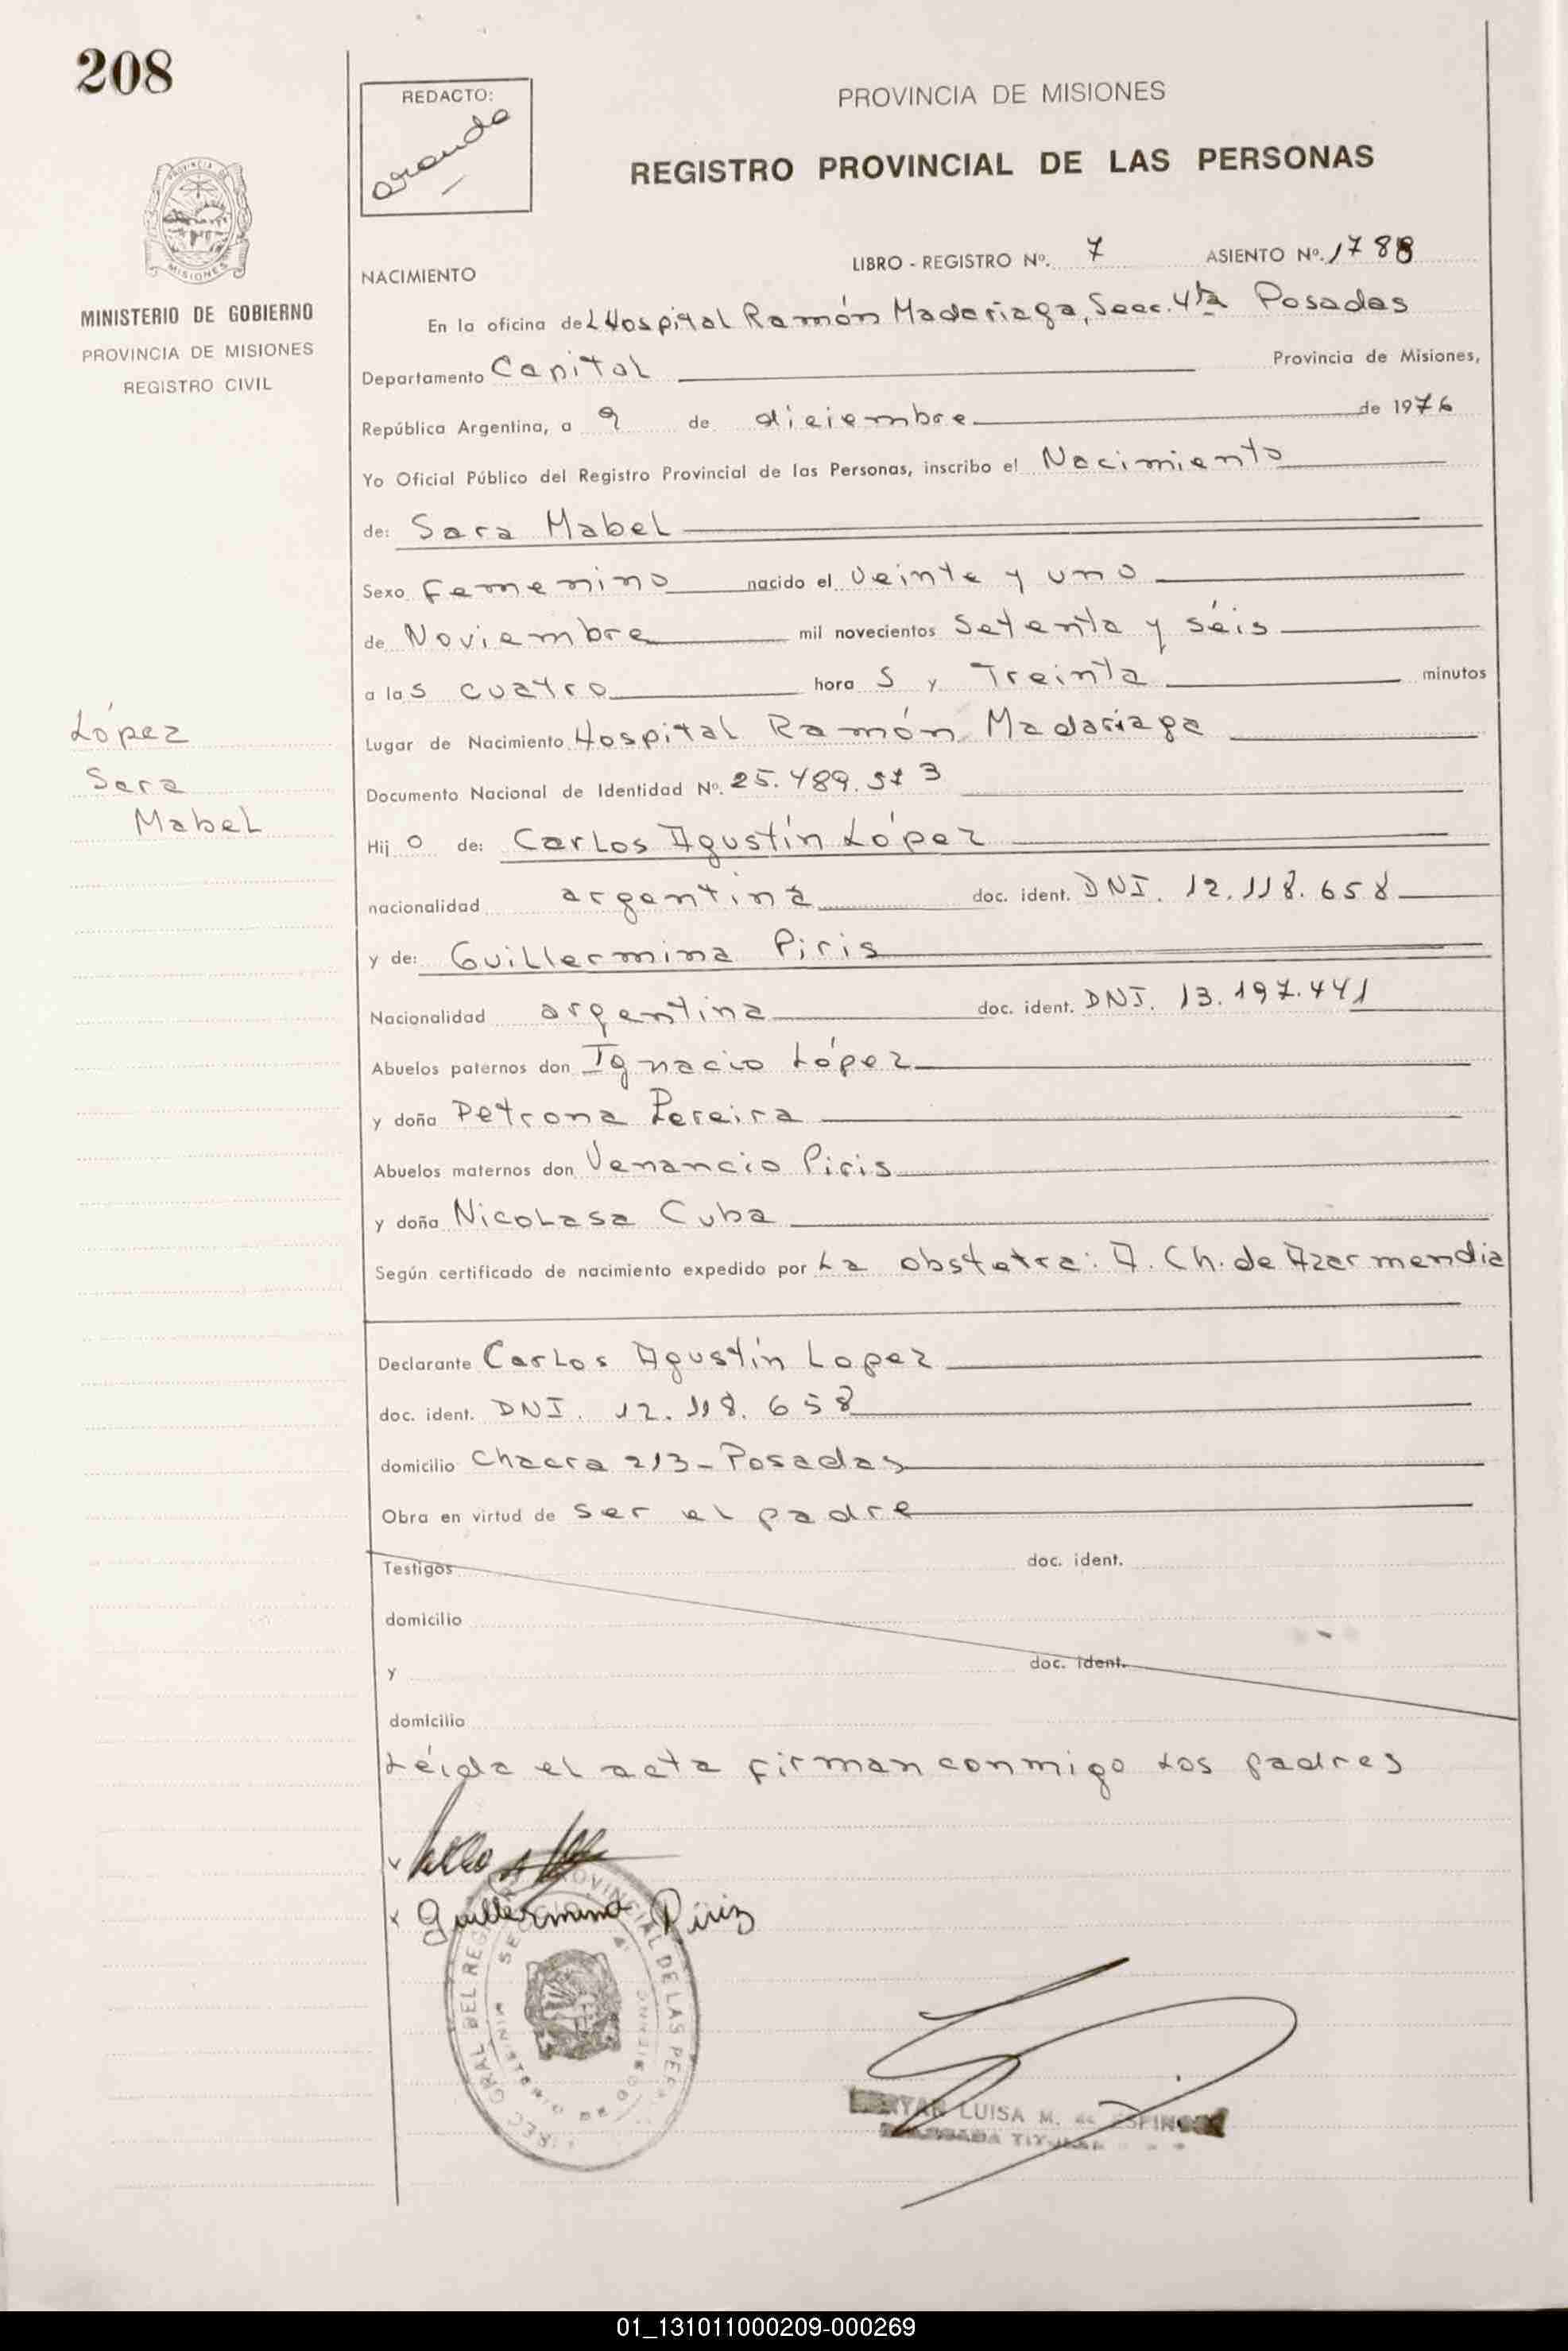 208
REDACTO:
PROVINCIA DE MISIONES
REGISTRO PROVINCIAL DE LAS PERSONAS
MINISTERIO DE GOBIERNO
PROVINCIA DE MISIONES
REGISTRO CIVIL
LIBRO - REGISTRO Nº. 7 ASIENTO Nº. 1788
NACIMIENTO
En la oficina del Hospital Ramón Madariaga, Secc. 4ta Posadas
Departamento Capital Provincia de Misiones,
República Argentina, a 9 de diciembre de 1976
Yo Oficial Público del Registro Provincial de las Personas, inscribo el Nacimiento
de: Sara Mabel
Sexo femenino nacido el Veinte y uno
de Noviembre mil novecientos Setenta y séis
a las cuatro hora s y Treinta minutos
López
Sara
Mabel
Lugar de Nacimiento Hospital Ramón Madariaga
Documento Nacional de Identidad Nº. 25.489.
Hij o de: Carlos Agustín López
nacionalidad argentina doc. ident. DNI. 12.118.658
y de: Guillermina Piris
Nacionalidad argentina doc. ident. DNI. 13.197.441
Abuelos paternos don Ignacio López
y doña Petrona Pereira
Abuelos maternos don Venancio Piris
y doña Nicolasa Cuba
Según certificado de nacimiento expedido por La obstetra: A. Ch. de Azarmendia
Declarante Carlos Agustín Lopez
doc. ident. DNI. 12.118.658
domicilio Chacra 213 - Posadas
Obra en virtud de ser el padre
Testigos doc. ident.
domicilio
y doc. ident.
domicilio
Léida el acta firman conmigo los padres
Guillermina Piriz
LUISA M. de ESPINOSA
01_131011000209-000269